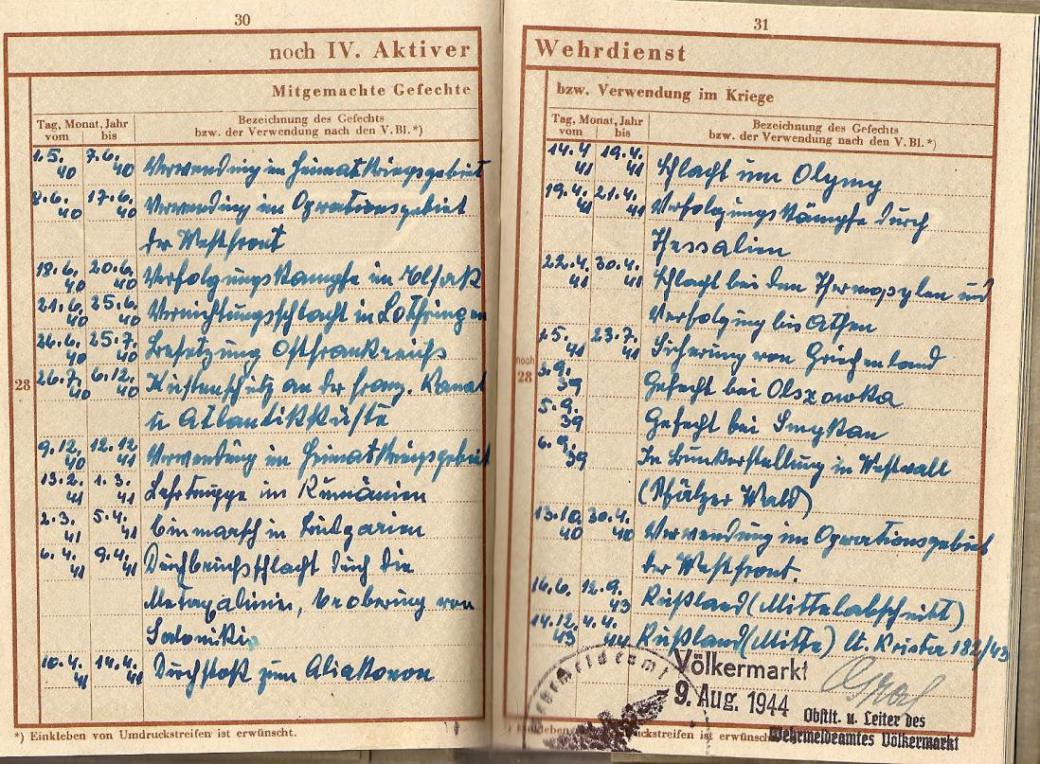 30
noch IV. Aktiver
Mitgemachte Gefechte
Tag, Monat, Jahr
vom bis
Bezeichnung des Gefechts
bzw. der Verwendung nach den V. Bl. *)
1.5.40 7.6.40 Verwendung im Heimatkriegsgebiet
8.6.40 17.6.40 Verwendung im Operationsgebiet
der Westfront
18.6.40 20.6.40 Verfolgungskämpfe im Elsaß
21.6.40 25.6.40 Vernichtungsschlacht in Lothringen
26.6.40 25.7.40 Besetzung Ostfrankreichs
28
26.7.40 6.12.40 Küstenschutz an der franz. Kanal
u Atlantikküste
9.12.40 12.12.41 Verwendung im Heimatkriegsgebiet
13.2.41 1.3.41 Lehrtruppe in Rumänien
2.3.41 5.4.41 Einmarsch in Bulgarien
6.4.41 9.4.41 Durchbruchsschlacht durch die
Metaxalinie, Eroberung von
Saloniki
10.4.41 14.4.41 Durchstoß zum Aliakmon
*) Einkleben von Umdruckstreifen ist erwünscht.
31
Wehrdienst
bzw. Verwendung im Kriege
Tag, Monat, Jahr
vom bis
Bezeichnung des Gefechts
bzw. der Verwendung nach den V. Bl. *)
14.4.41 19.4.41 Schlacht um Olymp
19.4.41 21.4.41 Verfolgungskämpfe durch
Thessalien
22.4.41 30.4.41 Schlacht bei den Thermopylen und
Verfolgung bis Athen
1.5.41 23.7.41 Sicherung von Griechenland
noch
28
3.9.39 Gefecht bei Olszowka
5.9.39 Gefecht bei
6.9.39 In Bunkerstellung im Westwall
(Pfälzer Wald)
13.10.40 30.4.40 Verwendung im Operationsgebiet
der Westfront.
16.6. 12.9.43 Rußland (Mittelabschnitt)
14.12.43 4.4.44 Rußland (Mitte) lt. 182/43
Wehrmeldeamt
Völkermarkt
9. Aug. 1944
Obstlt. u. Leiter des
Wehrmeldeamtes Völkermarkt
*) Einkleben ckstreifen ist erwünsch